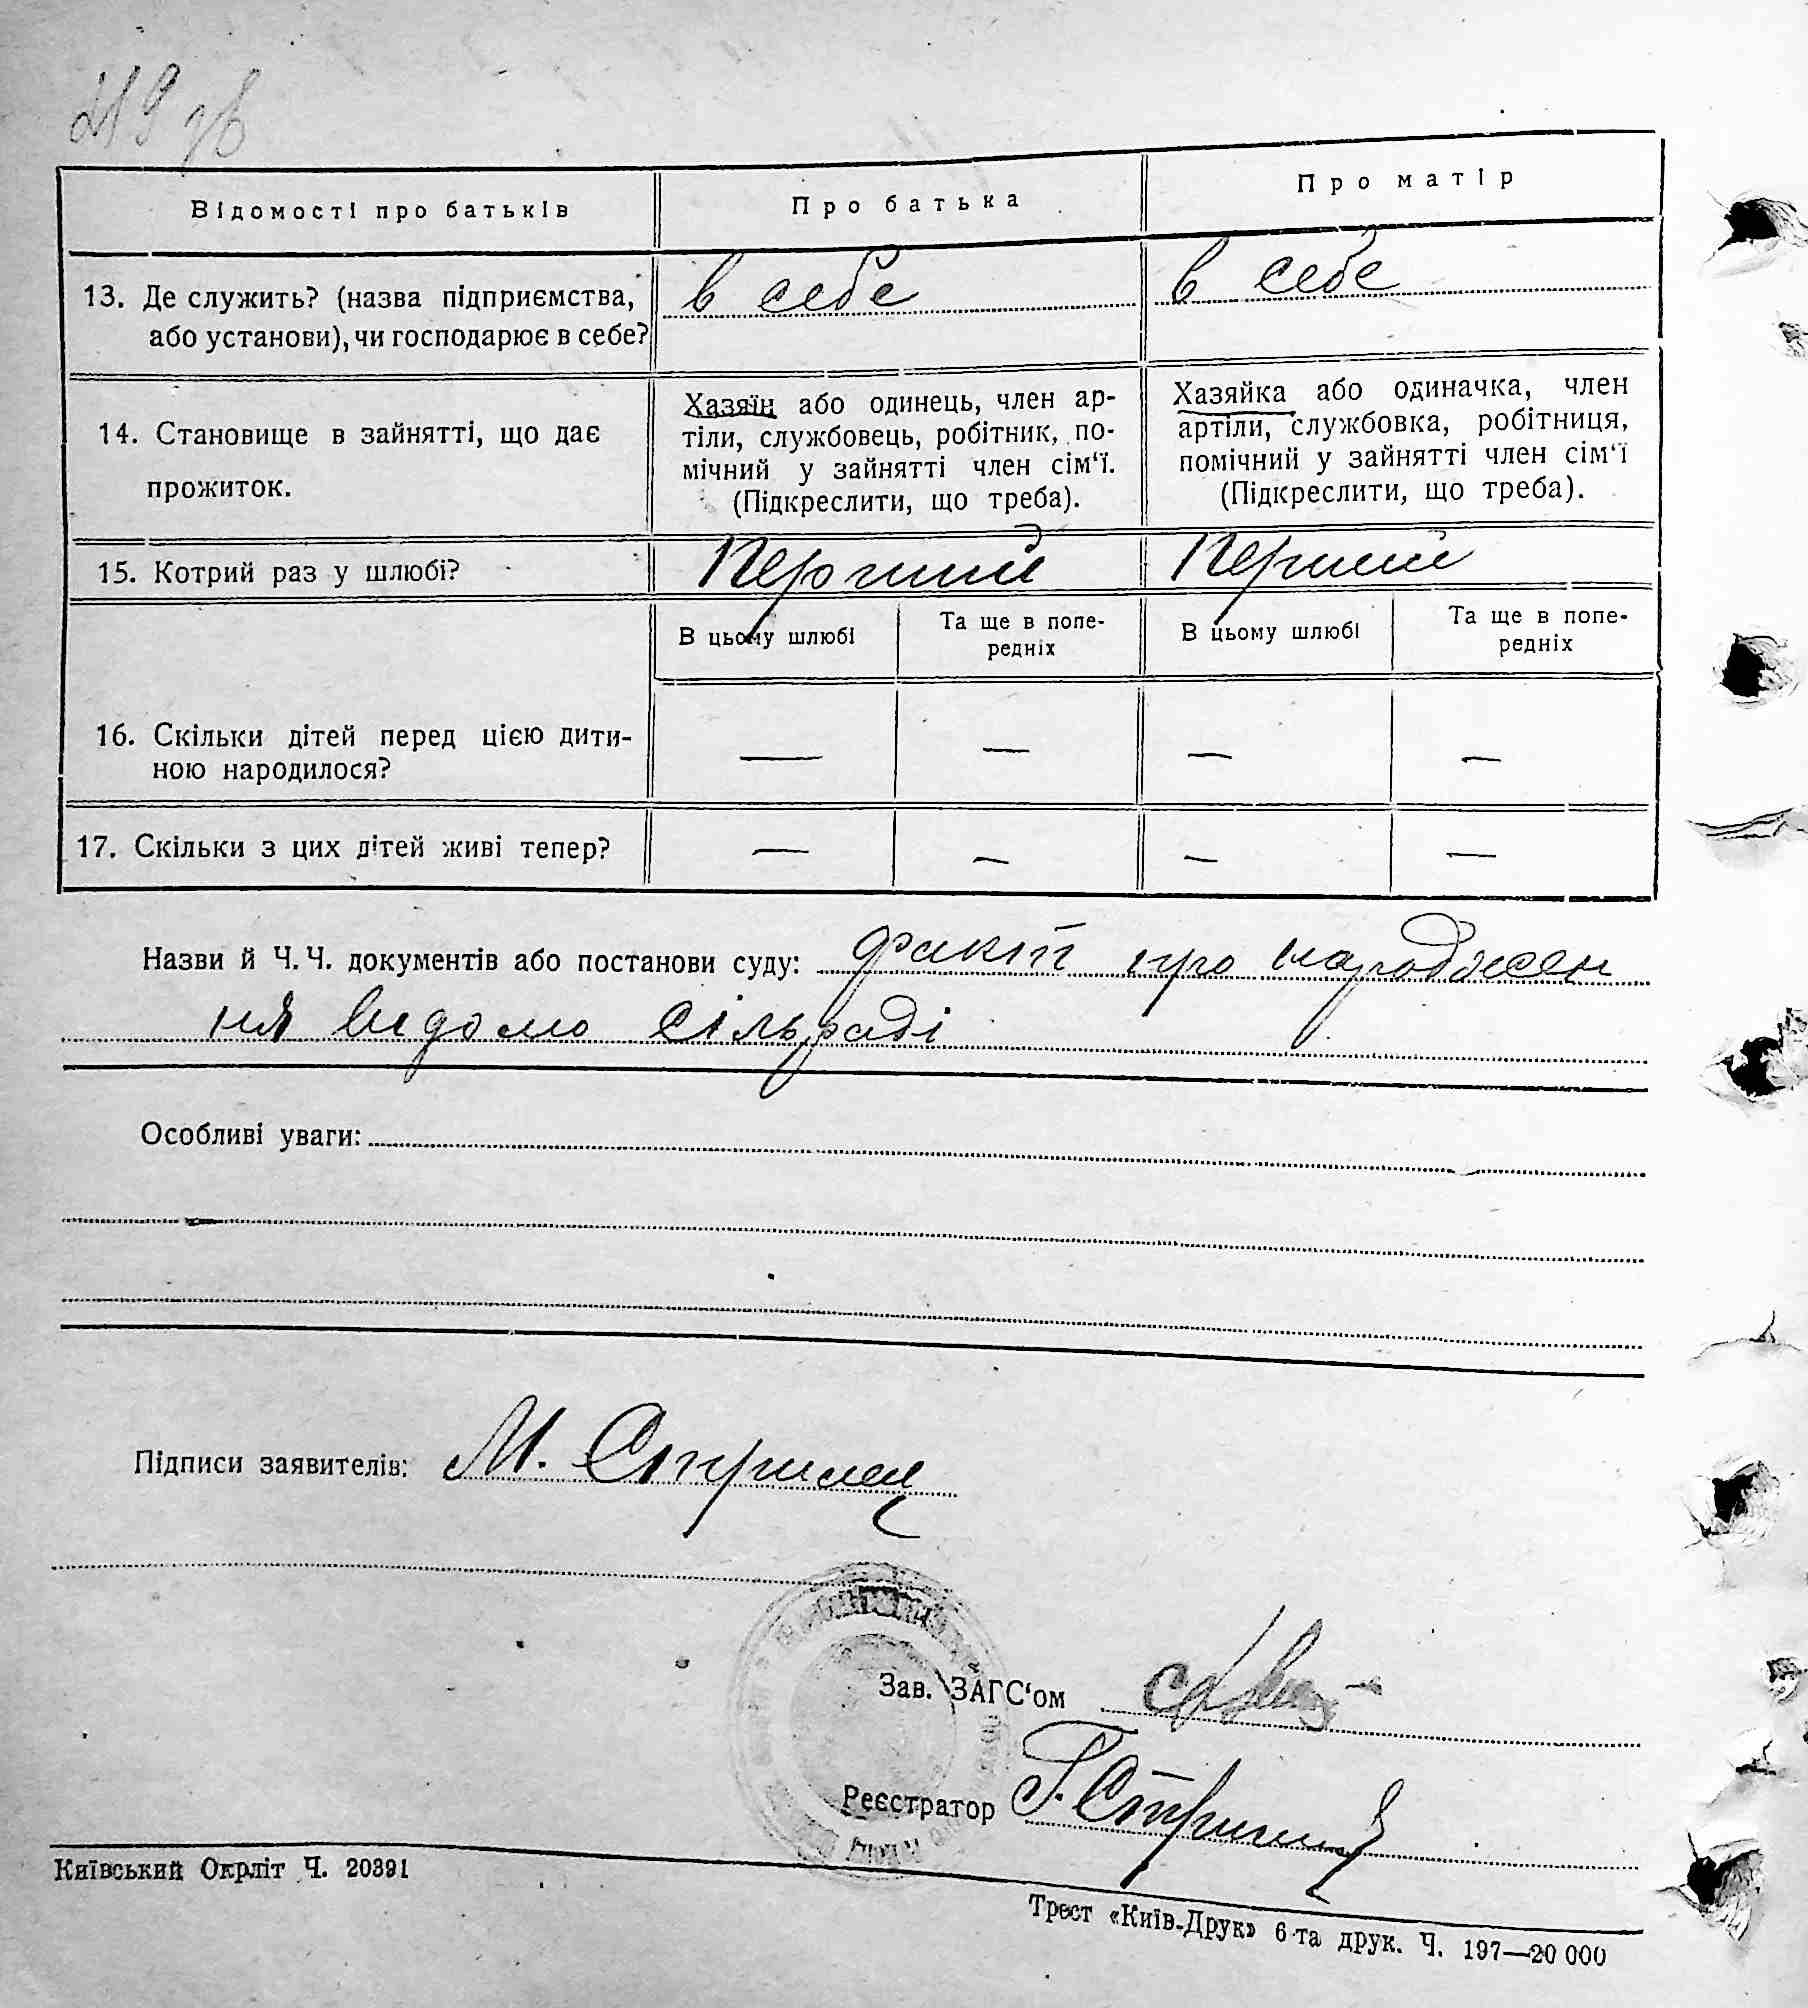 219 зв
Відомості про батьків
Про батька
Про матір
13. Де служить? (назва підприємства,
або установи), чи господарює в себе?
в себе
в себе
14. Становище в зайнятті, що дає
прожиток.
Хазяїн або одинець, член ар-
тіли, службовець, робітник, по-
мічний у зайнятті член сім‘ї.
(Підкреслити, що треба).
Хазяйка або одиначка, член
артіли, службовка, робітниця,
помічний у зайнятті член сім‘ї
(Підкреслити, що треба).
15. Котрий раз у шлюбі?
Перший
Перший
В цьому шлюбі
Та ще в попе-
редніх
В цьому шлюбі
Та ще в попе-
редніх
16. Скільки дітей перед цією дити-
ною народилося?
— — — —
17. Скільки з цих дітей живі тепер?
— — — —
Назви й Ч.Ч. документів або постанови суду: факт про народжен
ня видомо сільраді
Особливі уваги:
Підписи заявителів: М.
Зав. ЗАГС‘ом
Реєстратор
Київський Окрліт Ч. 20391
Трест «Київ-Друк» 6-та друк. Ч. 197—20 000